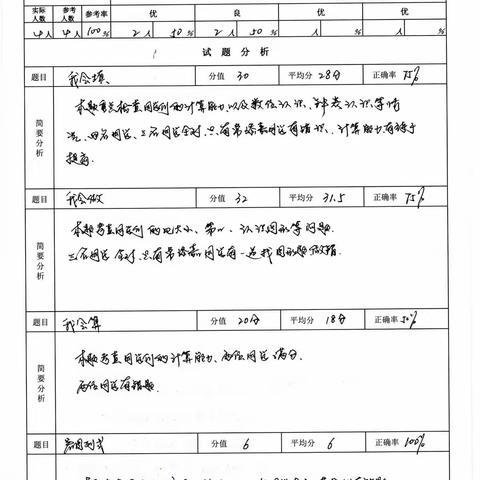 实际人数 参考人数 参考率 优 良
4人 4人 100% 2人 50% 2人 50% 人 人
试题分析
题目 我会填 分值 30 平均分 28分 正确率 75%
简要分析
本题重点检查同学们的计算能力以及数位认识、钟表认识等情
况,四名同学,三名同学全对,只有常添嘉同学有错误,计算能力有待于
提高。
题目 我会做 分值 32 平均分 31.5 正确率 75%
简要分析
本题考查同学们的比大小、第一、认识图形等问题.
三名同学全对,只有常添嘉同学有一道找图形题做错.
题目 我会算 分值 20分 平均分 18分 正确率 50%
简要分析
本题考查同学们的计算能力、两位同学满分.
两位同学有错题.
题目 看图列式 分值 6 平均分 6 正确率 100%